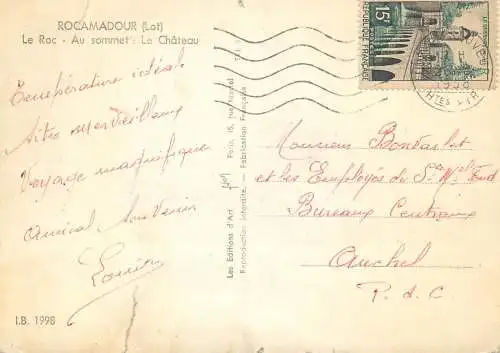 ROCAMADOUR (Lot)
Le Roc - Au sommet : Le Château
Température idéale
Sites merveilleux
Voyage magnifique
Amical Souvenir
Louis
I.B. 1998
Les Editions d'Art Paris, 15, rue Martel
Reproduction Interdite - Fabrication Française
15F
REPUBLIQUE FRANÇAISE
Monsieur Bondarlet
et les Employés du Sce Mel Fond
Bureaux Centraux
Auchel
P. d. C.